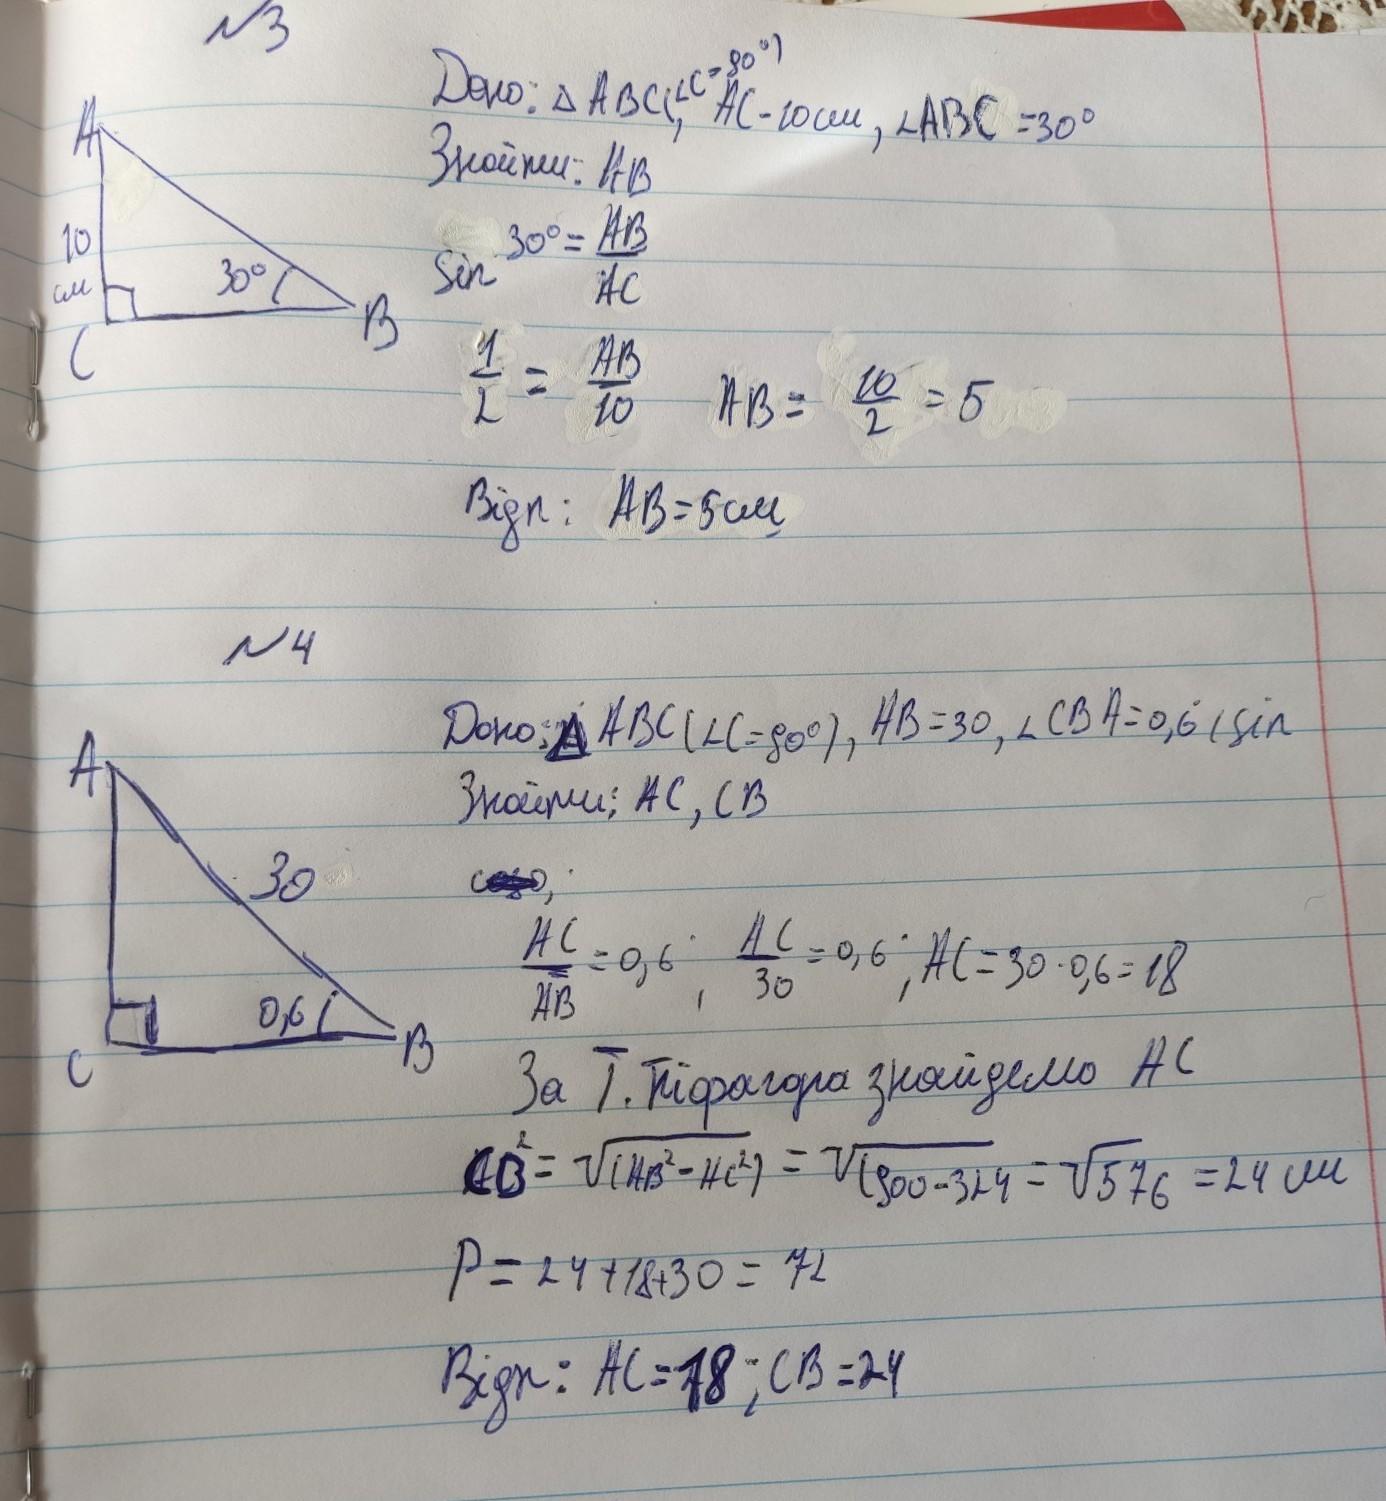 N3
Дано: △ ABC(∠C=90°), AC-10см, ∠ABC =30°
Знайти: AB
A
10
см
30°
C
B
sin 30° = AB/AC
1/2 = AB/10 AB = 10/2 = 5
Відп: AB=5см
N4
Дано: △ ABC (∠C=90°), AB=30, ∠CBA=0,6 (sin
Знайти: AC, CB
A
30
0,6
C
B
AC/AB = 0,6; AC/30 = 0,6; AC = 30·0,6 = 18
За Т. Піфагора знайдемо AC
CB² = √(AB²-AC²) = √(900-324 = √576 = 24 см
P = 24+18+30 = 72
Відп: AC=18; CB=24